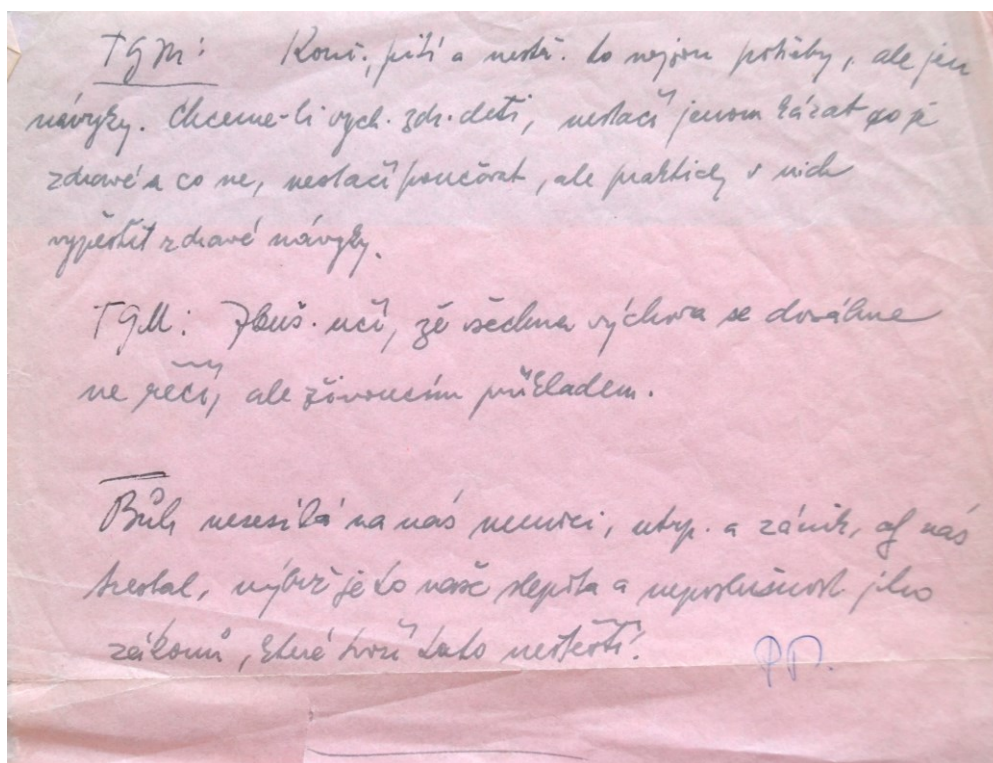 TGM: Kouř., pití a nestř. to nejsou potřeby, ale jen
návyky. Chceme-li vych. zdr. děti, nestačí jenom kázat co je
zdravé a co ne, nestačí poučovat, ale prakticky v nich
vypěstit zdravé návyky.
TGM: Zkuš. učí, že všechna výchova se dosáhne
ne řečí, ale živoucím příkladem.
Bůh nesesílá na nás nemoci, utrp. a zánik, aj nás
trestal, nýbrž je to naše slepota a neposlušnost jeho
zákonů, které tvoří tato neštěstí!